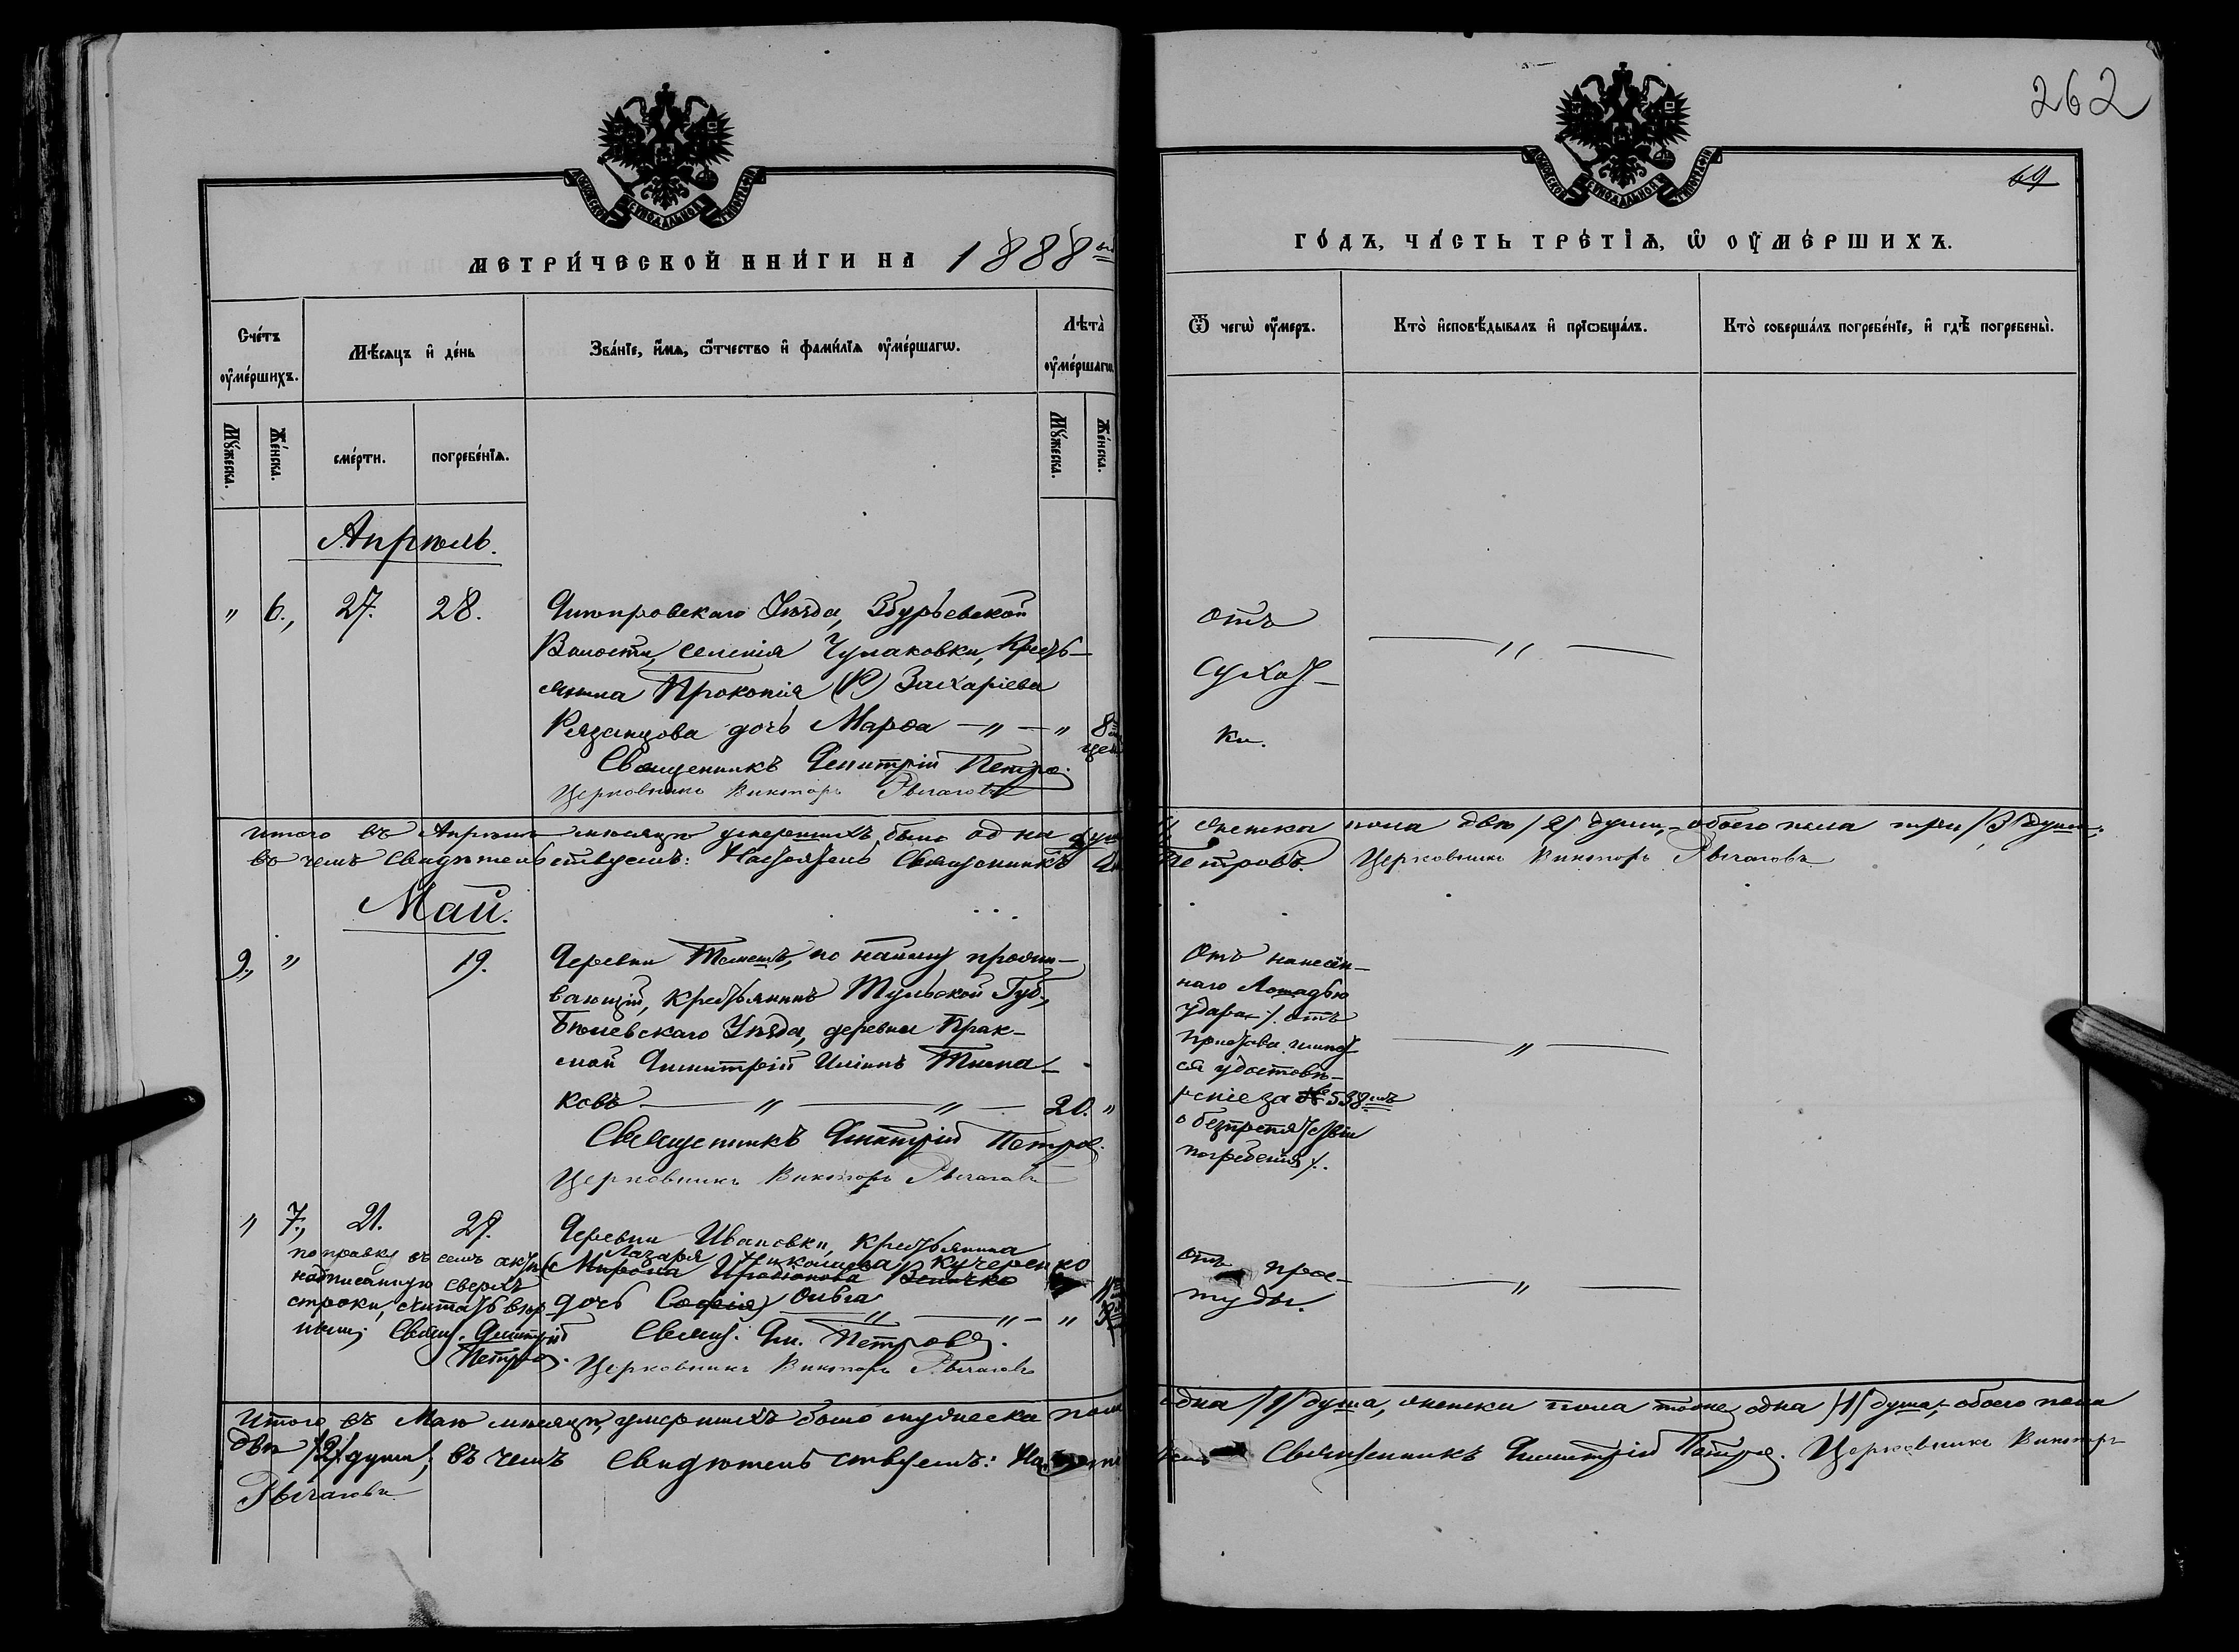 262
69
МЕТРИ́ЧЕСКОЙ КНИ́ГИ НА 1888
ГО́ДЪ, ЧА́СТЬ ТРЕ́ТІѦ, Ѡ ОУ҆МЕ́РШИХЪ.
Сче́тъ оу҆ме́ршихъ.
Мѣ́сяцъ и҆ де́нь
Зва́нїе, и҆́мя, ѻ҆́тчество и҆ фами́лїя оу҆ме́ршагѡ.
Лѣта̀ оу҆ме́ршагѡ.
Ѿ чегѡ̀ оу҆́меръ.
Кто̀ и҆сповѣ́дывалъ и҆ прїѡбща́лъ.
Кто̀ соверша́лъ погребе́нїе, и҆ гдѣ̀ погребены̀.
Му́жеска.
Же́нска.
сме́рти.
погребе́нїя.
Му́жеска.
Же́нска.
Апрѣль.
" 6., 27. 28. Днѣпровскаго Уѣзда, Збурьевской
Волости, селенія Чулаковки, кресть-
янина Прокопія (Р) Захаріева
Рязанцова дочь Марѳа — " — " 8
Священникъ Димитрій Петров.
Церковникъ Викторъ Рычаговъ
отъ
сухот-
ки.
— " —
Итого въ Апрѣлѣ мѣсяцѣ умершихъ было одна душ
женска пола двѣ /2/ души, – обоего пола три /3/ души;
въ чемъ свидѣтельствуемъ: Настоятель Священникъ
Петровъ. Церковникъ Викторъ Рычаговъ
Май.
9., " 19. Деревни по найму прожи-
вающій, крестьянинъ Тульской Губ.,
Бѣлевскаго Уѣзда, деревни Прак-
Димитрій Тима-
ковъ — " — " — 20. "
Священникъ Димитрій Петров.
Церковникъ Викторъ Рычаговъ
Отъ нанесен-
наго Лошадью
удара /. отъ
Пристава
ся удостовѣ-
реніе за № 538
о безпрепятствіи
погребенія /.
— " —
" 7., 21. 29. Деревни Ивановки, крестьянина
Лазаря Николаева Кучеренко
Мирона Иродіонова Величко
дочь Софія Ольга
— " — " — "
Свящ. Дм. Петров.
Церковникъ Викторъ Рычаговъ
поправку въ семъ актѣ
надписанную сверхъ
строки, считать вѣр
ною; Свящ. Димитрій
Петров.
отъ прос-
туды.
— " —
Итого въ Маѣ мѣсяцѣ, умершихъ было мужеска пола
одна /1/ душа, женска пола тоже одна /1/ душа, – обоего пола
двѣ /2/ души; въ чемъ свидѣтельствуемъ:
Священникъ Димитрій Петров. Церковникъ Викторъ
Рычаговъ